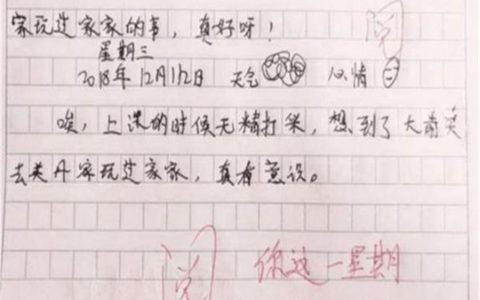 家玩过家家的事，真好呀！
阅
星期三
2018年12月12日 天气 心情
唉，上课的时候无精打采，想到了大前天
去关丹家玩过家家，真有意识。
阅 你这一星期